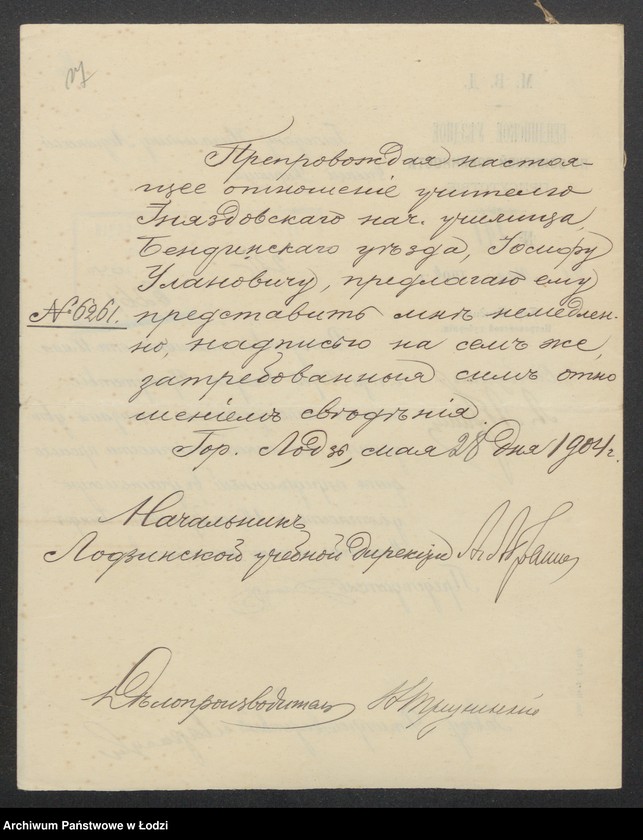 Препровождая настоя-
щее отношеніе учителю
Гняздовскаго нач. училища,
Бендинскаго уѣзда, Іосифу
Улановичу, предлагаю ему
№ 6261. представить мнѣ немедлен-
но, надписью на семъ же,
затребованныя симъ отно
шеніемъ свѣдѣнія.
Гор. Лодзь, мая 28 дня 1904 г.
Начальникъ
Лодзинской учебной дирекціи
Дѣлопроизводитель
Archiwum Państwowe w Łodzi